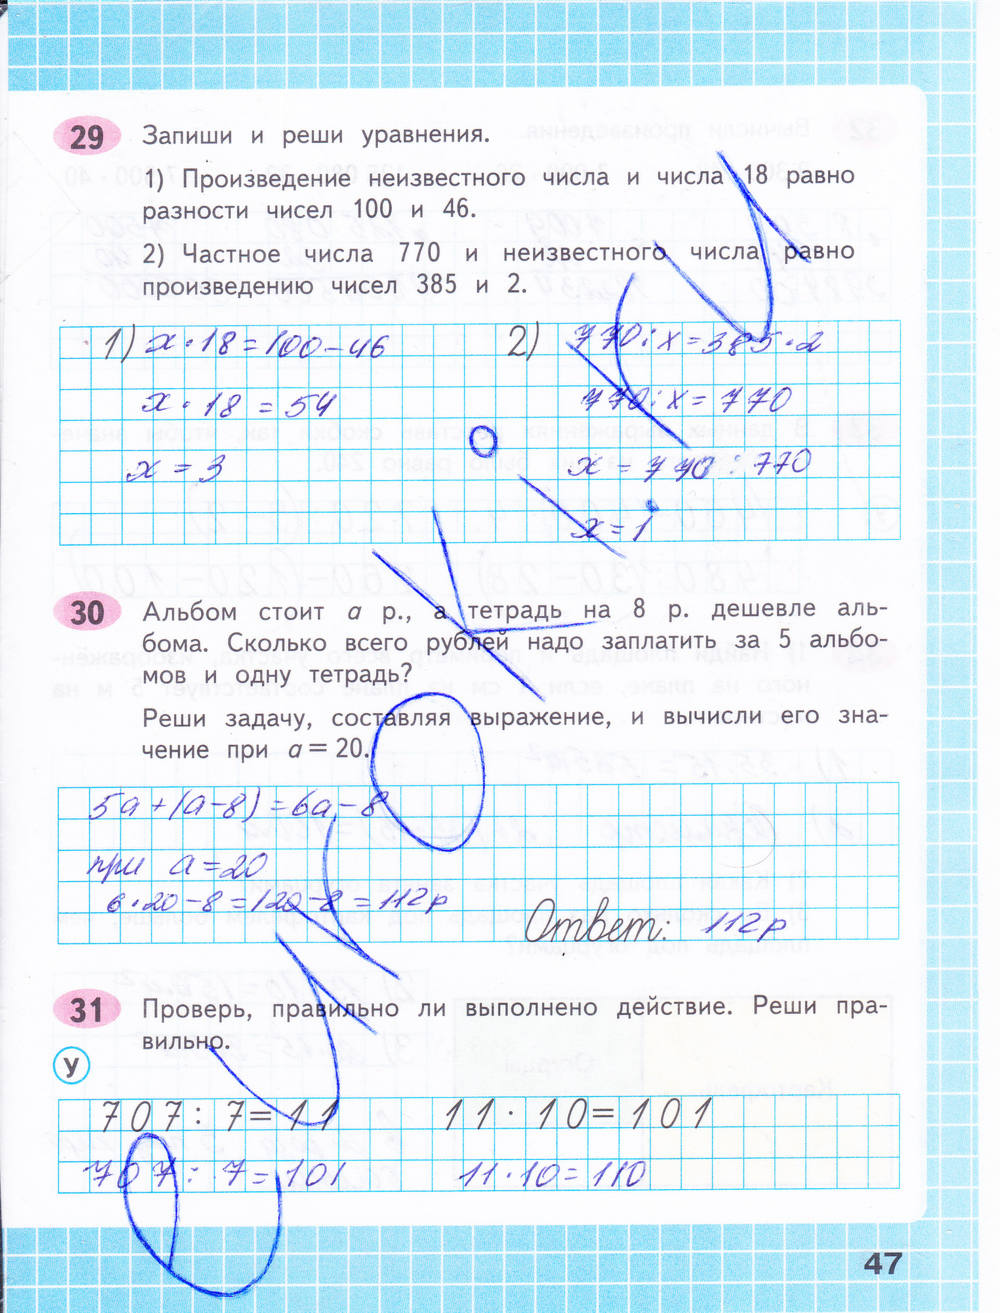 29 Запиши и реши уравнения.
1) Произведение неизвестного числа и числа 18 равно
разности чисел 100 и 46.
2) Частное числа 770 и неизвестного числа равно
произведению чисел 385 и 2.
1) x·18=100-46
x·18=54
x=3
2) 770:x=385·2
770:x=770
x=770:770
x=1
30 Альбом стоит а р., а тетрадь на 8 р. дешевле аль-
бома. Сколько всего рублей надо заплатить за 5 альбо-
мов и одну тетрадь?
Реши задачу, составляя выражение, и вычисли его зна-
чение при а = 20.
5а+(а-8)=6а-8
при а=20
6·20-8=120-8=112р
Ответ: 112р
31 Проверь, правильно ли выполнено действие. Реши пра-
вильно.
У
707:7=11 11·10=101
707:7=101 11·10=110
47